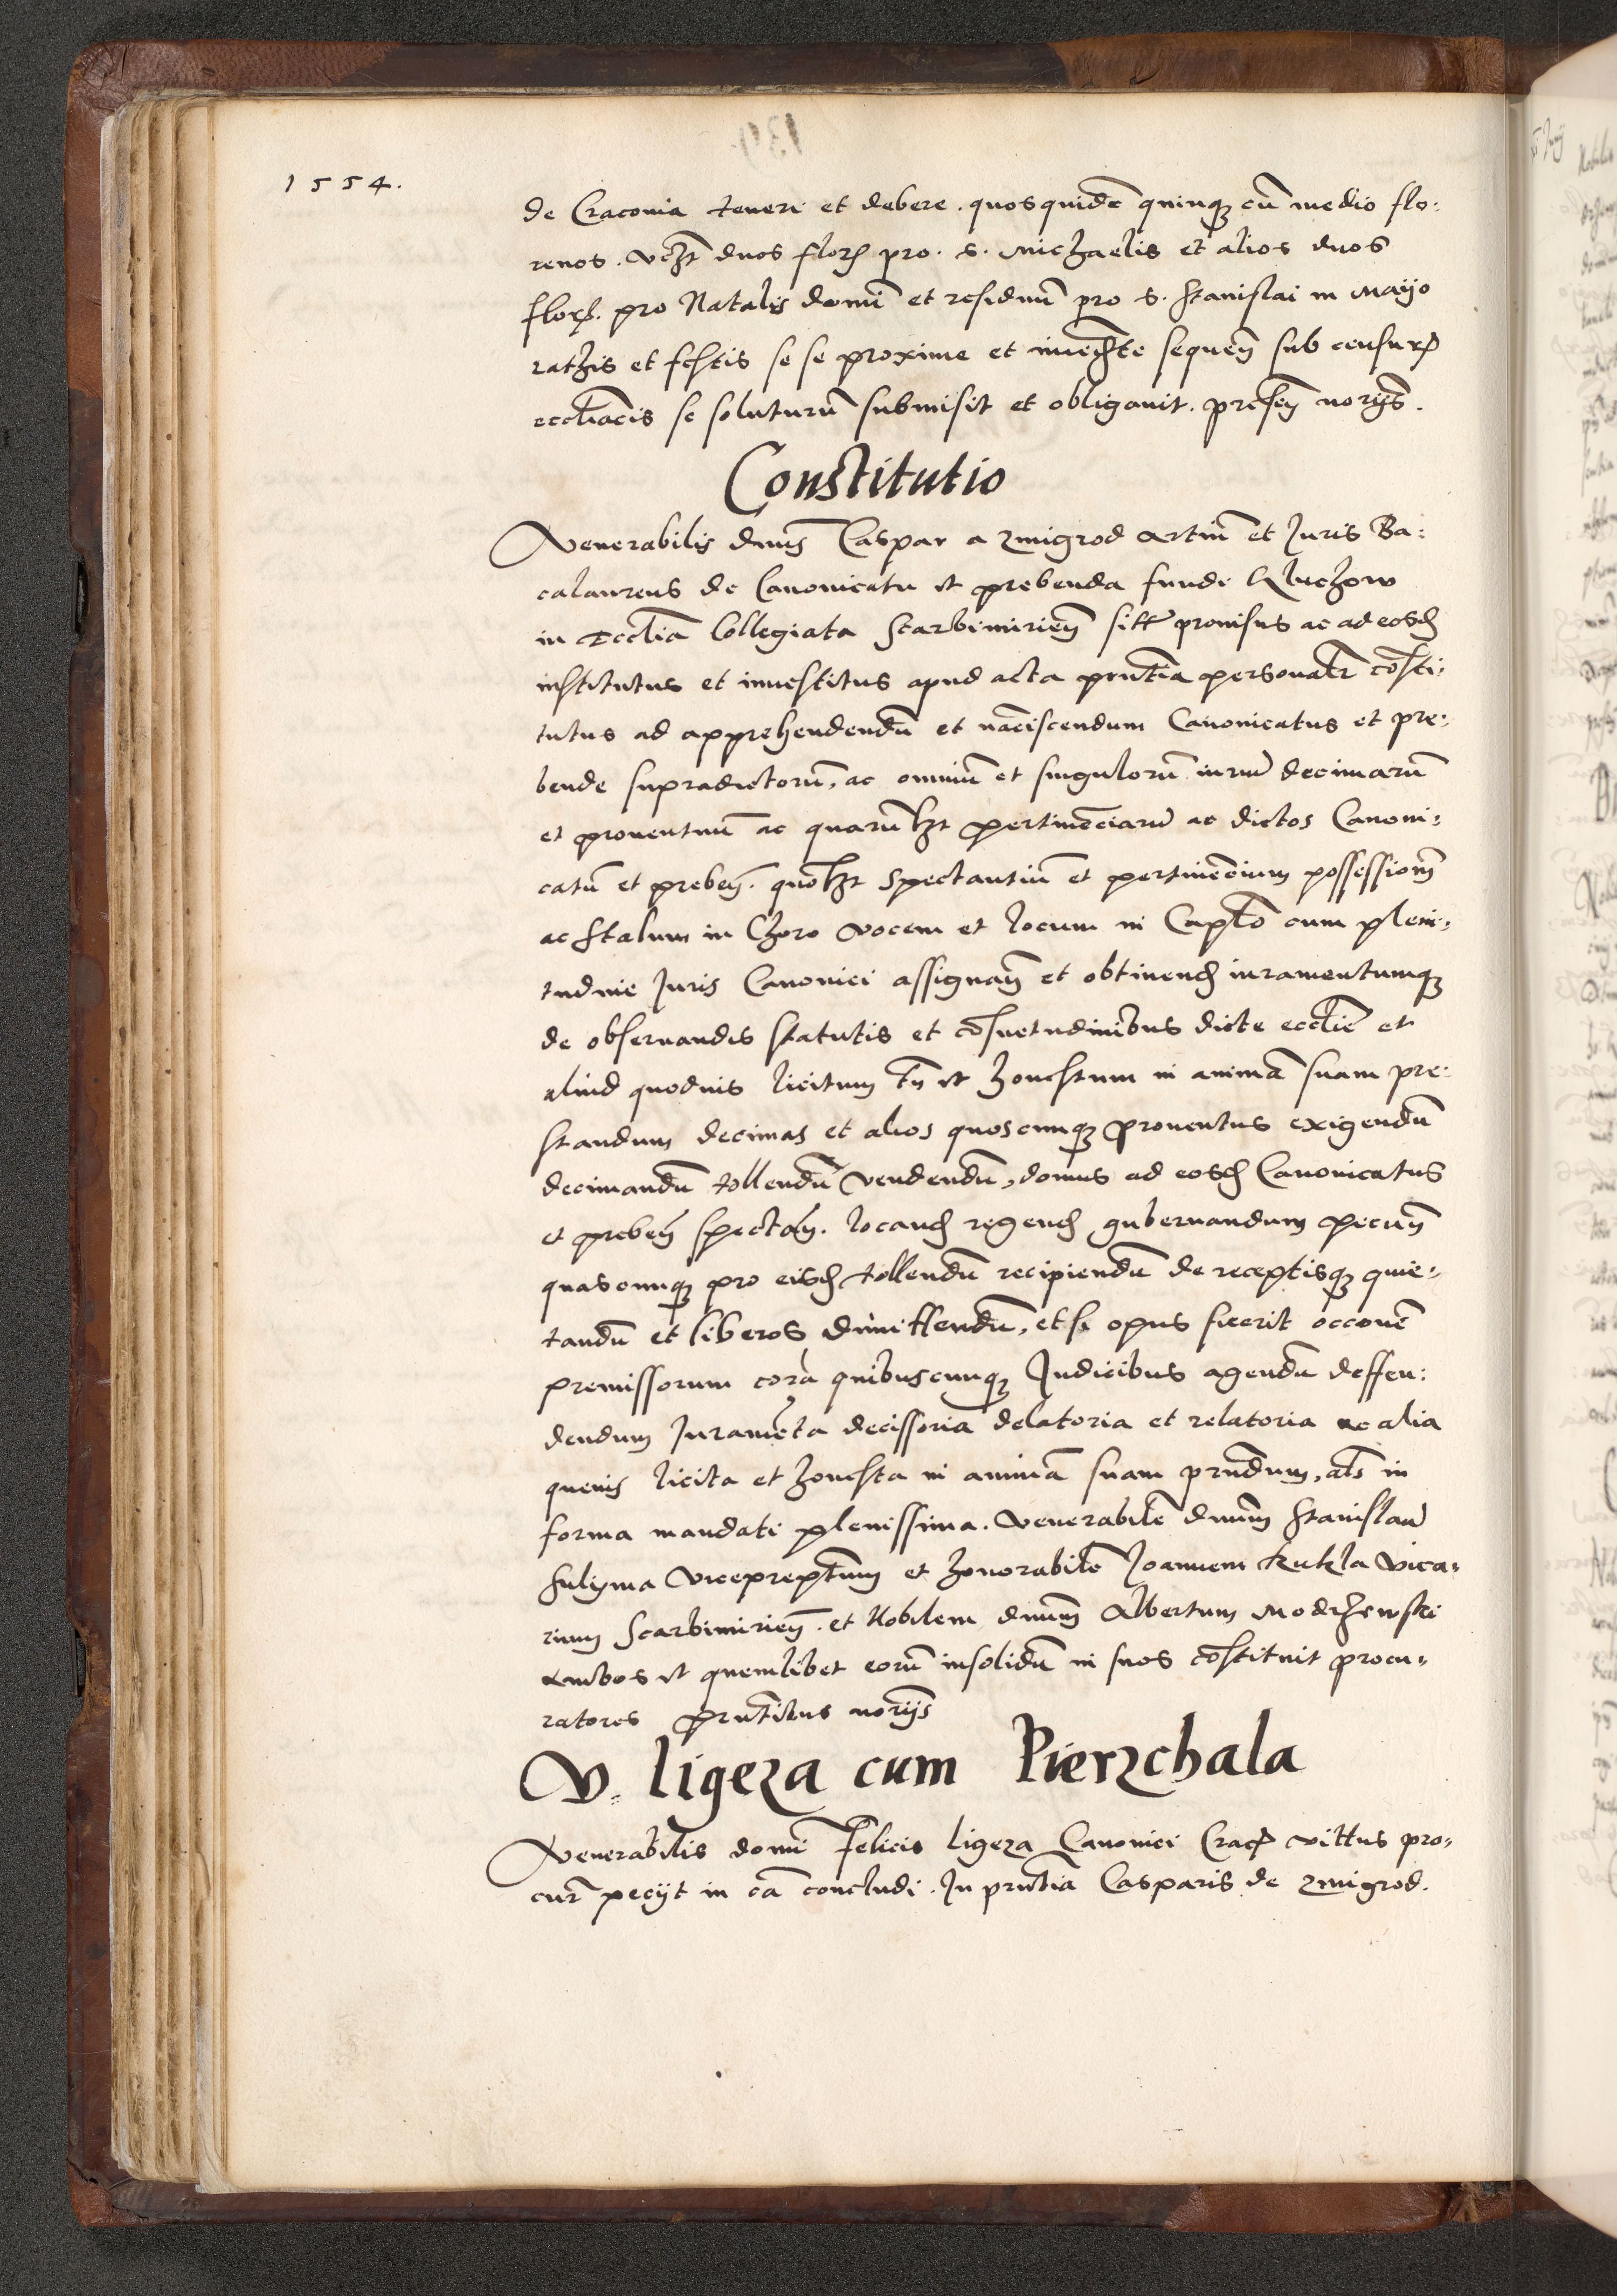 1554.
de Craconia teneri et debere. quosquidē quinq₃ cū medio flo:
renos. vꝫt duos floꝝ pro. S. Michaelis et alios duos
floꝝ. pro Natalis domī et residuū pro S. Stanislai in Mayo
rathis et festis se se proxime et sequeñ sub censuris
eccliācis se soluturū submisit et obligauit. preseñ noryš.
Constitutio
Venerabilis dnūs Caspar a Zmigrod Artiū et Juris Ba:
calaureus de Canonicatu et prebenda fundi Kluchow
in Ecclīa Collegiata Scarbimirieñ sitt prouisus ac ad eosđ
institutus et inuestitus apud acta pnūtia personatr̄ cōsti:
tutus ad apprehendendū et nāciscendum Canonicatus et pre:
bende supradictorū, ac omniū et singulorū iuriū decimarū
et prouentuū ac quarūlꝫt pertinēciarū ac dictos Canoni:
catū et prebeñ. quōlꝫt spectantiū et pertinēcium possessionē
ac stalum in Choro vocem et locum in Caplō cum pleni:
tudine Juris Canonici assignañ et obtinenđ iuramentumq₃
de obseruandis statutis et cōsuetudinibus dicte ecclīe et
aliud quoduis licitum tñ et honestum in animā suam pre:
standum decimas et alios quoscunq₃ prouentus exigendū
decimandū tollendū vendendū, domus ad eosđ Canonicatus
et prebeñ spectañ. locanđ regenđ gubernandum pecuñ
quascunq₃ pro eisđ tollendū recipiendū de receptisq₃ quie:
tandū et liberos dimittendū, et si opus fuerit occōne
premissorum corā quibuscunq₃ Judicibus agendū deffen:
dendum Juramēta decissoria delatoria et relatoria ac alia
queuis licita et honesta in animā suam prn̄dum, alš in
forma mandati plenissima. Venerabilē dnūm Stanislaū
Sulyma Viceprepťum et honorabilē Joannem Kukla Vica:
rium Scarbimirieñ. et Nobilem dnūm Albertum Modrhewski
Ambos et quemlibet eorū insolidū in suos cōstituit procu:
ratores prntībus noryš
V. Ligeza cum Pierzchala
Venerabilis domī Felicis Ligeza Canonici Craċ vittus pro:
cur̄ pecyt in cā concludi. In prntīa Casparis de Zmigrod.